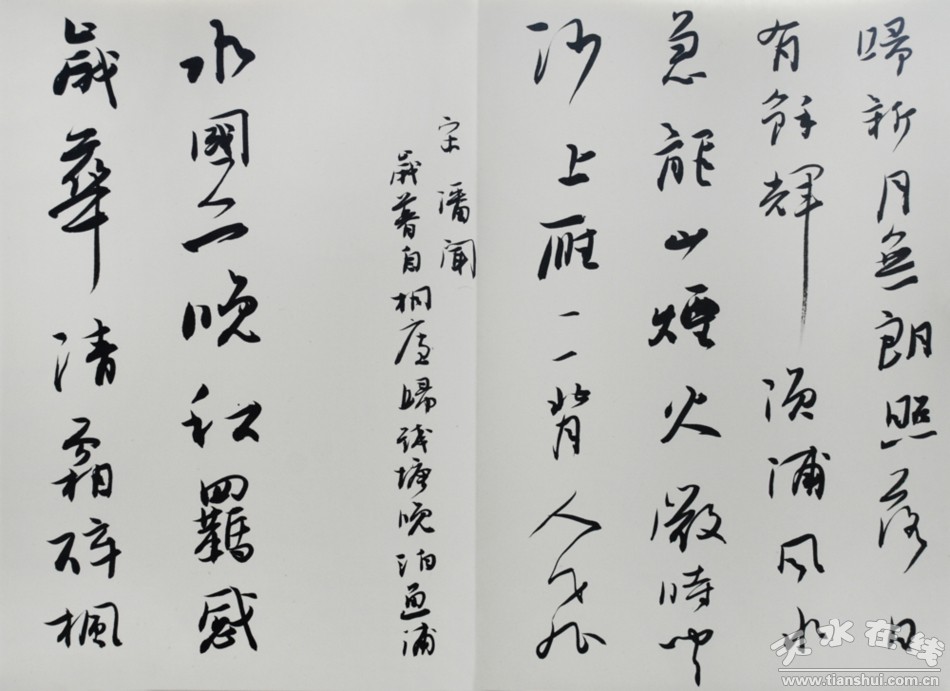 歸新月無朗照落日
有餘輝漁浦風水
急龍山煙火微時聞
沙上雁一一背人飛
宋 潘閬
歲暮自桐廬歸錢塘晚泊漁浦
水國晚秋羈感
歲華清霜醉楓
天水在线
www.tianshui.com.cn